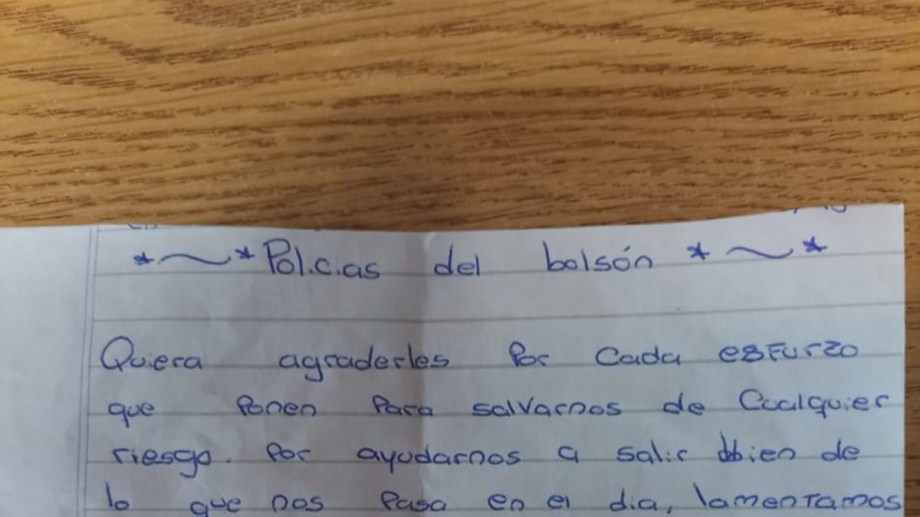 *~* Policias del bolsón *~*
Quiera agraderles Por Cada esfurzo
que Ponen Para salvarnos de Cualquier
riesgo. Por ayudarnos a salir bien de
lo que nos Pasa en el dia, lamentamos